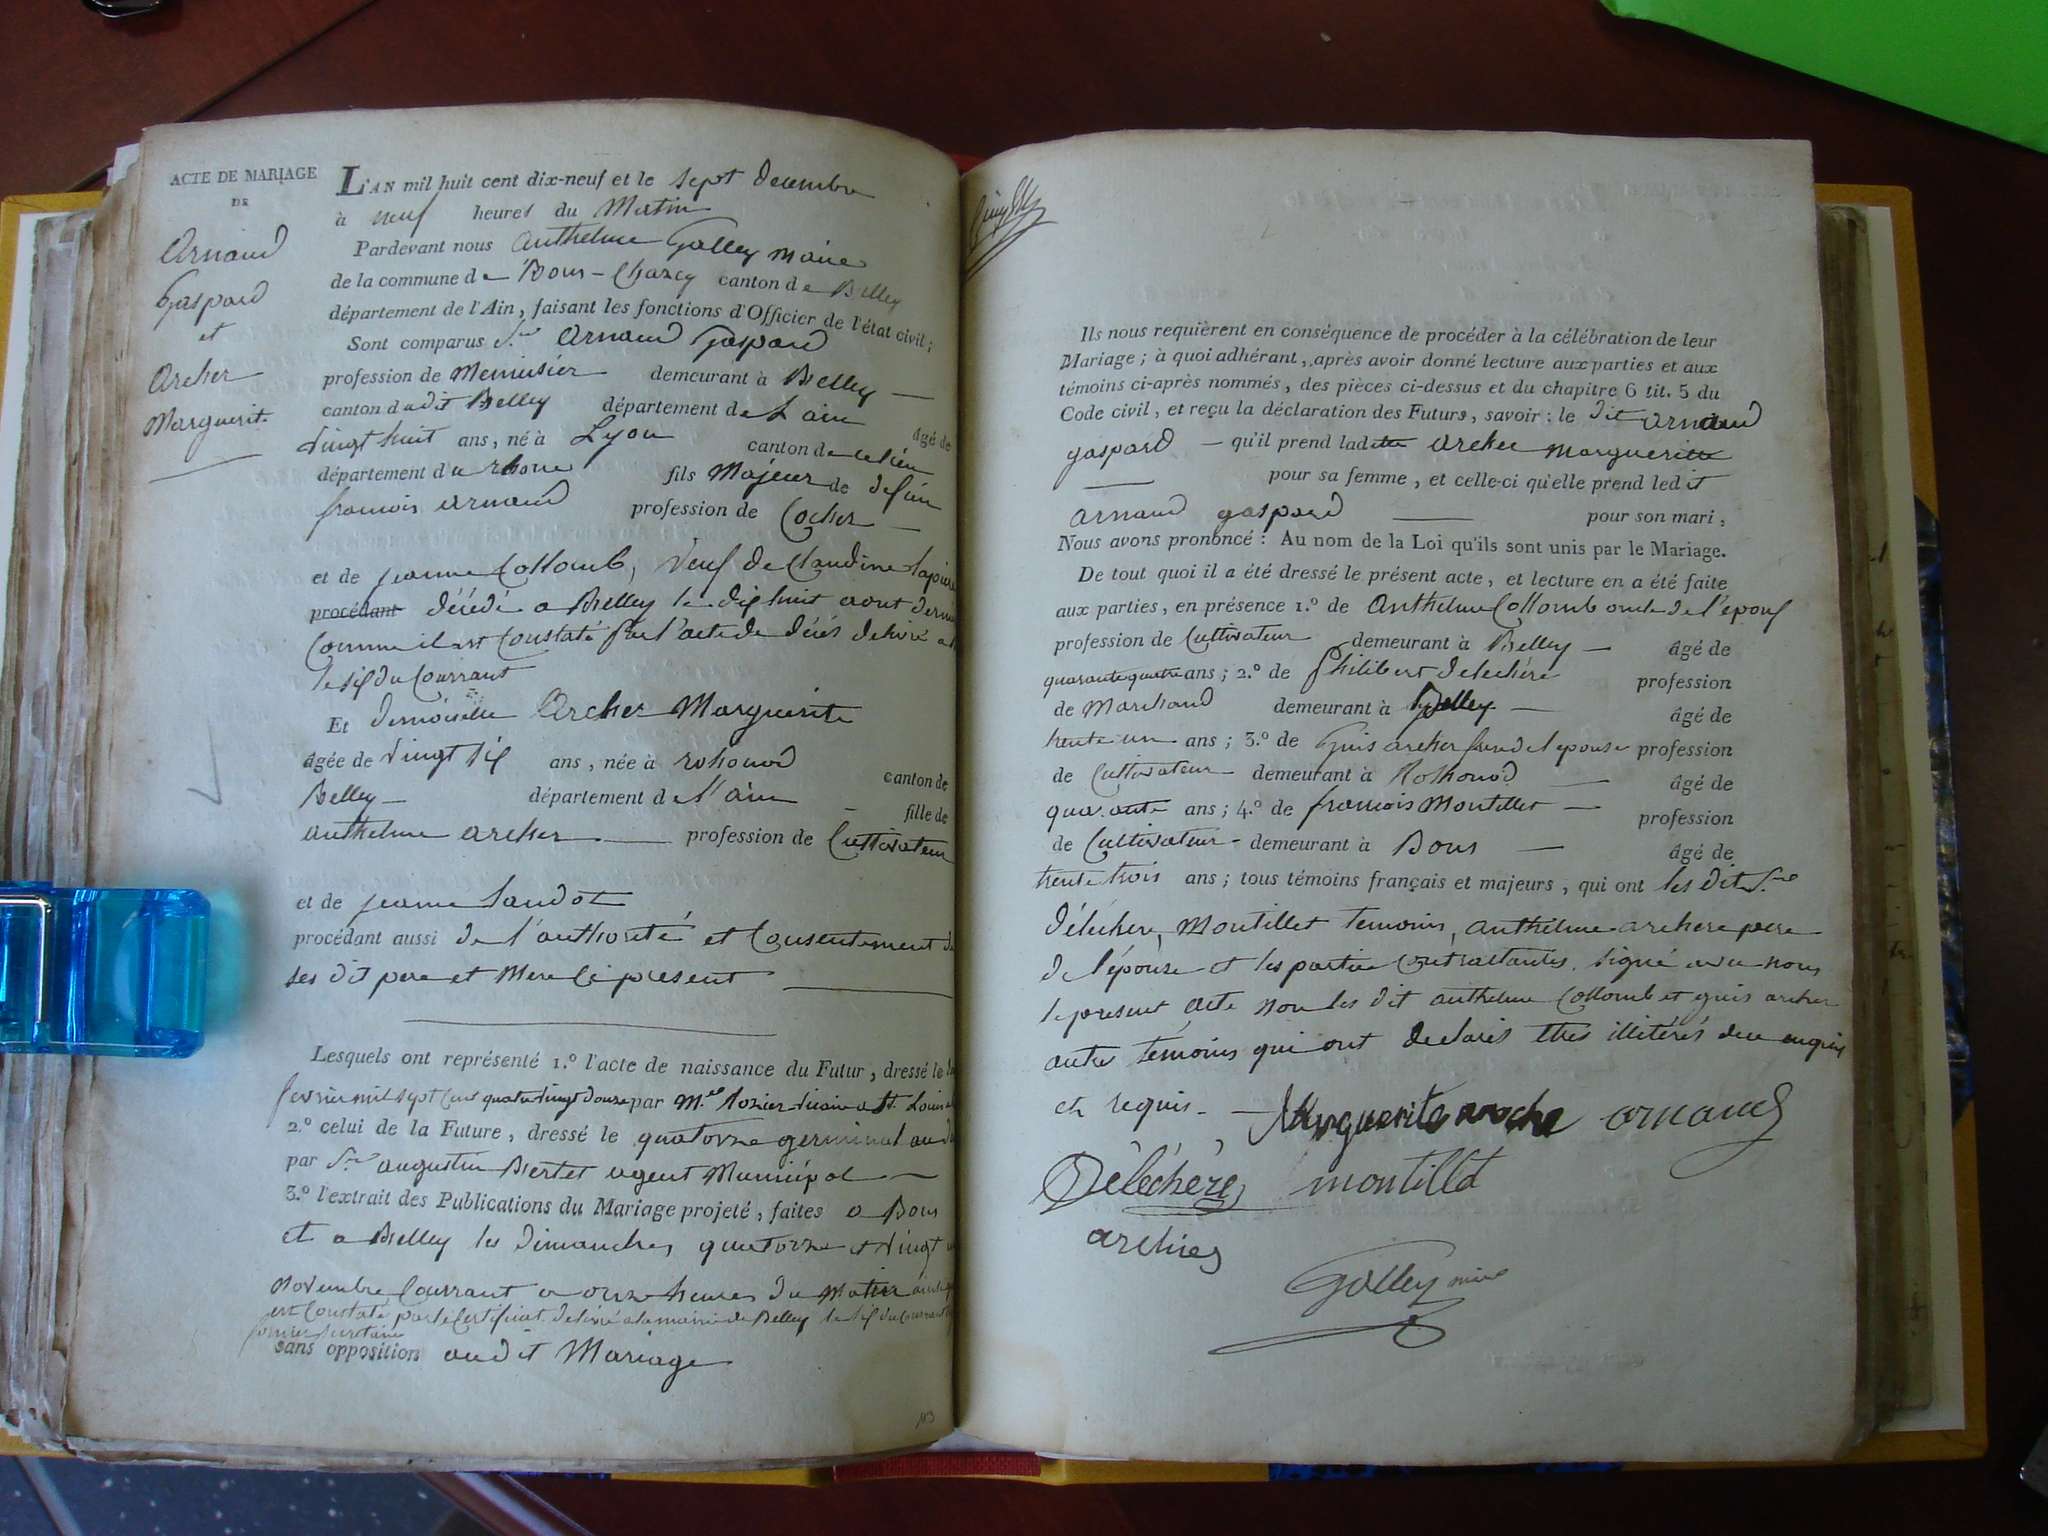 ACTE DE MARIAGE
DE
Arnaud
Gaspard
et
Archer
Marguerit.
L'AN mil huit cent dix-neuf et le sept decembre
à neuf heures du Matin
Pardevant nous Anthelme Golley maire
de la commune de Bons-Chazey canton de Belley
département de l'Ain, faisant les fonctions d'Officier de l'état civil;
Sont comparus Sr Arnaud Gaspard
profession de Menuisier demeurant à Belley
canton dudit Belley département de L'ain âgé de
vingt huit ans, né à Lyon canton de
département du rhone fils Majeur de defun
francois arnaud profession de Cocher
et de jeanne Collomb, veuf de Claudine
procédant décédé a Belley le dix huit aout dernier
Comme il est Constaté par l'acte de décés delivré
le six du Courrant
Et demoiselle Archer Marguerite
âgée de vingt six ans, née à rossonod canton de
Belley département de l'ain fille de
anthelme archer profession de Cultivateur
et de jeanne
procédant aussi de l'authorité et Consentement de
ses dit pere et Mere ci present
Lesquels ont représenté 1.º l'acte de naissance du Futur, dressé le
fevrier mil sept Cent quatre vingt douze par Mr Rozier vicaire a St. Louis
2.º celui de la Future, dressé le quatorze germinal an
par Sr augustin Bertet agent Municipal
3.º l'extrait des Publications du Mariage projeté, faites a Bons
et a Belley les dimanches quatorze et vingt un
Novembre Courrant a onze heures du Matin
est Constaté par le Certificat delivré a la mairie de Belley le six du Courrant
secretaire
sans opposition audit Mariage
113
Ils nous requièrent en conséquence de procéder à la célébration de leur
Mariage; à quoi adhérant, après avoir donné lecture aux parties et aux
témoins ci-après nommés, des pièces ci-dessus et du chapitre 6 tit. 5 du
Code civil, et reçu la déclaration des Futurs, savoir: le dit arnaud
gaspard qu'il prend ladite archer marguerite
pour sa femme, et celle-ci qu'elle prend ledit
arnaud gaspard pour son mari,
Nous avons prononcé: Au nom de la Loi qu'ils sont unis par le Mariage.
De tout quoi il a été dressé le présent acte, et lecture en a été faite
aux parties, en présence 1.º de Anthelme Collomb oncle de l'epoux
profession de Cultivateur demeurant à Belley âgé de
quarante quatre ans; 2.º de philibert delechére profession
de Marchand demeurant à Belley âgé de
trente un ans; 3.º de archer de l'epouse profession
de Cultivateur demeurant à Rossonod âgé de
quarante ans; 4.º de francois Montillet profession
de Cultivateur demeurant à Bons âgé de
trente trois ans; tous témoins français et majeurs, qui ont les dit Sr
délechere, Montillet temoins, anthelme archere pere
de l'épouse et les partie Contractantes, signé avec nous
le present acte non les dit anthelme Collomb et archer
autres témoins qui ont declarés etres illitérés de ce enquis
et requis.
Marguerite arnaud
Deléchére montillet
archier
Golley mire